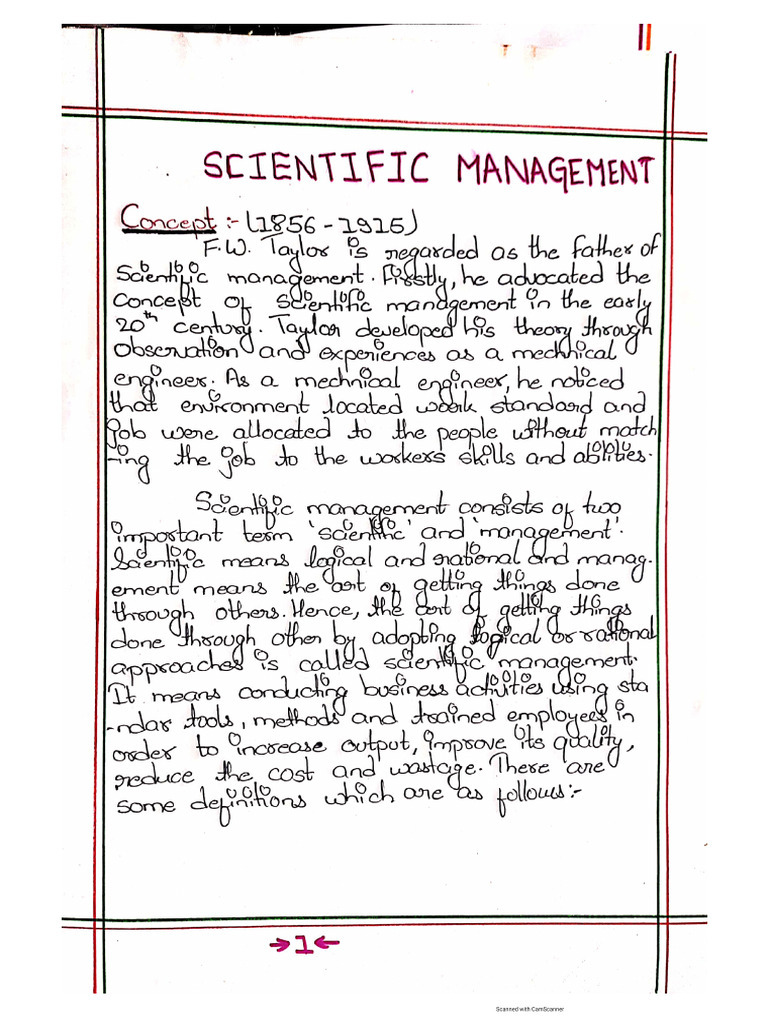 SCIENTIFIC MANAGEMENT
Concept :- (1856 - 1915)
F.W. Taylor is regarded as the father of
Scientific management. Firstly, he advocated the
concept of scientific management in the early
20th century. Taylor developed his theory through
observation and experiences as a mechnical
engineer. As a mechnical engineer, he noticed
that environment located work standard and
job were allocated to the people without match
-ing the job to the workers skills and abilities.
Scientific management consists of two
important term 'scientific' and 'management'.
Scientific means logical and rational and manag-
ement means the art of getting things done
through others. Hence, the art of getting things
done through other by adopting logical or rational
approaches is called scientific management.
It means conducting business activities using sta
-ndar tools, methods and trained employees in
order to increase output, improve its quality,
reduce the cost and wastage. There are
some definitions which are as follows:-
→1←
Scanned with CamScanner